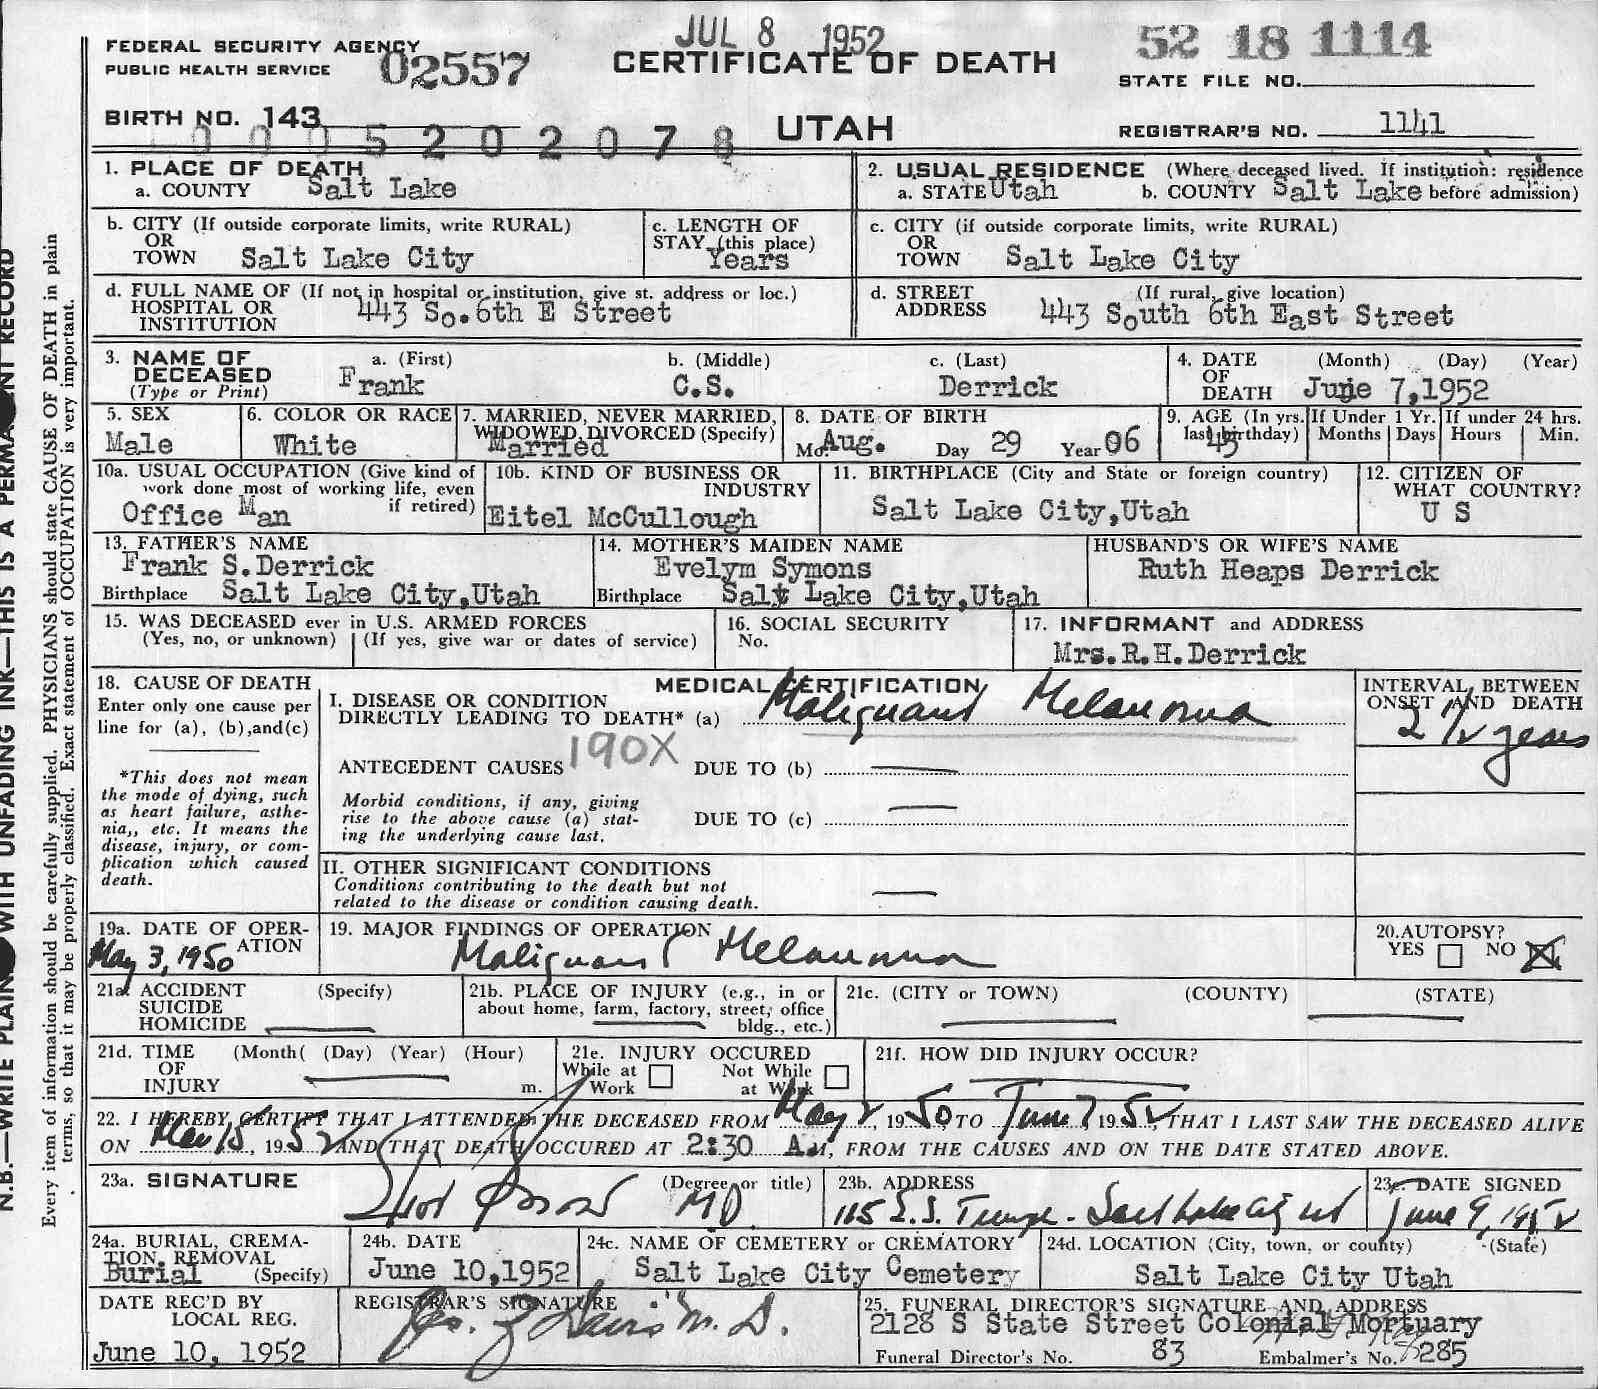 JUL 8 1952
52 18 1114
FEDERAL SECURITY AGENCY
PUBLIC HEALTH SERVICE
02557
CERTIFICATE OF DEATH
STATE FILE NO.
BIRTH NO. 143
0005202078
UTAH
REGISTRAR'S NO. 1141
1. PLACE OF DEATH
a. COUNTY Salt Lake
2. USUAL RESIDENCE (Where deceased lived. If institution: residence
a. STATE Utah b. COUNTY Salt Lake before admission)
b. CITY (If outside corporate limits, write RURAL)
OR
TOWN Salt Lake City
c. LENGTH OF
STAY (this place)
Years
c. CITY (if outside corporate limits, write RURAL)
OR
TOWN Salt Lake City
d. FULL NAME OF (If not in hospital or institution, give st. address or loc.)
HOSPITAL OR
INSTITUTION 443 So. 6th E Street
d. STREET (If rural, give location)
ADDRESS 443 South 6th East Street
3. NAME OF
DECEASED
(Type or Print)
a. (First) b. (Middle) c. (Last)
Frank C.S. Derrick
4. DATE (Month) (Day) (Year)
OF
DEATH June 7,1952
5. SEX
Male
6. COLOR OR RACE
White
7. MARRIED, NEVER MARRIED,
WIDOWED, DIVORCED (Specify)
Married
8. DATE OF BIRTH
Mo. Aug. Day 29 Year 06
9. AGE (In yrs.
last birthday)
45
If Under 1 Yr.
Months Days
If under 24 hrs.
Hours Min.
10a. USUAL OCCUPATION (Give kind of
work done most of working life, even
if retired)
Office Man
10b. KIND OF BUSINESS OR
INDUSTRY
Eitel McCullough
11. BIRTHPLACE (City and State or foreign country)
Salt Lake City,Utah
12. CITIZEN OF
WHAT COUNTRY?
U S
13. FATHER'S NAME
Frank S.Derrick
Birthplace Salt Lake City,Utah
14. MOTHER'S MAIDEN NAME
Evelym Symons
Birthplace Salt Lake City,Utah
HUSBAND'S OR WIFE'S NAME
Ruth Heaps Derrick
15. WAS DECEASED ever in U.S. ARMED FORCES
(Yes, no, or unknown) (If yes, give war or dates of service)
16. SOCIAL SECURITY
No.
17. INFORMANT and ADDRESS
Mrs.R.H.Derrick
18. CAUSE OF DEATH
Enter only one cause per
line for (a), (b),and(c)
*This does not mean
the mode of dying, such
as heart failure, asthe-
nia,, etc. It means the
disease, injury, or com-
plication which caused
death.
MEDICAL CERTIFICATION
I. DISEASE OR CONDITION
DIRECTLY LEADING TO DEATH* (a) Malignant Melanoma
190X
ANTECEDENT CAUSES DUE TO (b)
Morbid conditions, if any, giving
rise to the above cause (a) stat-
ing the underlying cause last.
DUE TO (c)
II. OTHER SIGNIFICANT CONDITIONS
Conditions contributing to the death but not
related to the disease or condition causing death.
INTERVAL BETWEEN
ONSET AND DEATH
2 1/2 years
19a. DATE OF OPER-
ATION
May 3, 1950
19. MAJOR FINDINGS OF OPERATION
Malignant Melanoma
20. AUTOPSY?
YES NO
21a. ACCIDENT (Specify)
SUICIDE
HOMICIDE
21b. PLACE OF INJURY (e.g., in or
about home, farm, factory, street, office
bldg., etc.)
21c. (CITY or TOWN) (COUNTY) (STATE)
21d. TIME (Month( (Day) (Year) (Hour)
OF
INJURY m.
21e. INJURY OCCURED
While at Not While
Work at Work
21f. HOW DID INJURY OCCUR?
22. I HEREBY CERTIFY THAT I ATTENDED THE DECEASED FROM May 2 1950 TO June 7 1952, THAT I LAST SAW THE DECEASED ALIVE
ON 15, 1952 AND THAT DEATH OCCURED AT 2:30 A.M, FROM THE CAUSES AND ON THE DATE STATED ABOVE.
23a. SIGNATURE (Degree or title)
MD.
23b. ADDRESS
Salt Lake City
23c. DATE SIGNED
June 9, 1952
24a. BURIAL, CREMA-
TION, REMOVAL
Burial (Specify)
24b. DATE
June 10,1952
24c. NAME OF CEMETERY or CREMATORY
Salt Lake City Cemetery
24d. LOCATION (City, town, or county) (State)
Salt Lake City Utah
DATE REC'D BY
LOCAL REG.
June 10, 1952
REGISTRAR'S SIGNATURE
Davis M. D.
25. FUNERAL DIRECTOR'S SIGNATURE AND ADDRESS
2128 S State Street Colonial Mortuary
Funeral Director's No. 83 Embalmer's No. 285
N.B.—WRITE PLAIN WITH UNFADING INK—THIS IS A PERMA NT RECORD
Every item of information should be carefully supplied. PHYSICIANS should state CAUSE OF DEATH in plain
terms, so that it may be properly classified. Exact statement of OCCUPATION is very important.